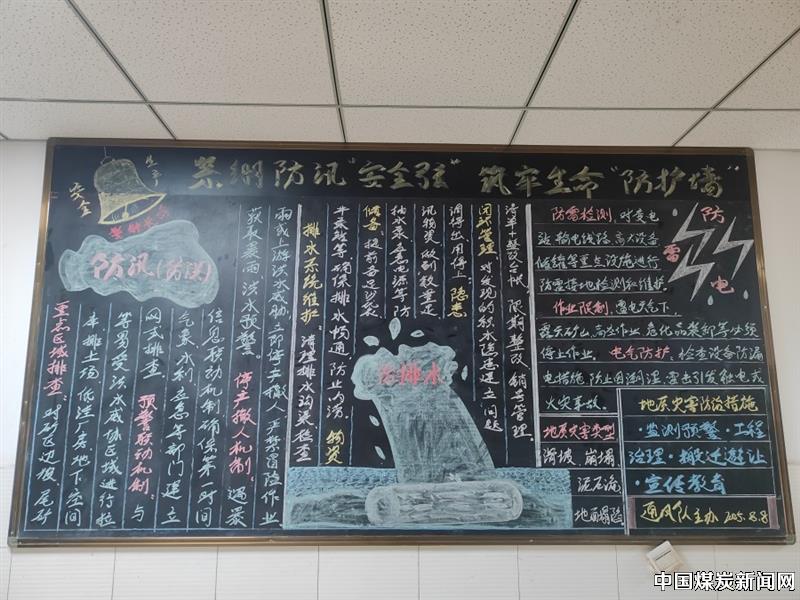 紧绷防汛“安全弦” 筑牢生命“防护墙”
安全
生产
警钟长鸣
防汛(防洪)
重点区域排查：对矿区边坡、尾矿
库、排土场、低洼厂房、地下空间
等易受洪水威胁区域进行拉
网式排查。预警联动机制：与
气象、水利、应急等部门建立
信息联动机制，确保第一时间
获取暴雨、洪水预警。停产撤人机制：遇暴
雨或上游洪水威胁，立即停产撤人，严禁冒险作业
防排水
排水系统维护：清理排水沟渠，检查
水泵等，确保排水畅通，防止内涝。物资
储备：提前备足沙袋、
抽水泵、应急电源等防
汛物资，做到数量足、
调得出、用得上。隐患
闭环管理：对发现的积水隐患建立问题
清单+整改台帐，限期整改，销号管理。
防雷电
防雷检测：对变电
站、输电线路、高大设备
储罐等重点设施进行
防雷接地检测和维护。
作业限制：雷电天气下，
露天矿山、高空作业、危化品装卸等必须
停止作业，电气防护：检查设备防漏
电措施，防止因潮湿、雷击引发触电或
火灾事故。
地质灾害类型
滑坡、崩塌
泥石流
地面塌陷
地质灾害防治措施
·监测预警·工程
治理·搬迁避让
·宣传教育
通风队主办 2025.8.8
中国煤炭新闻网